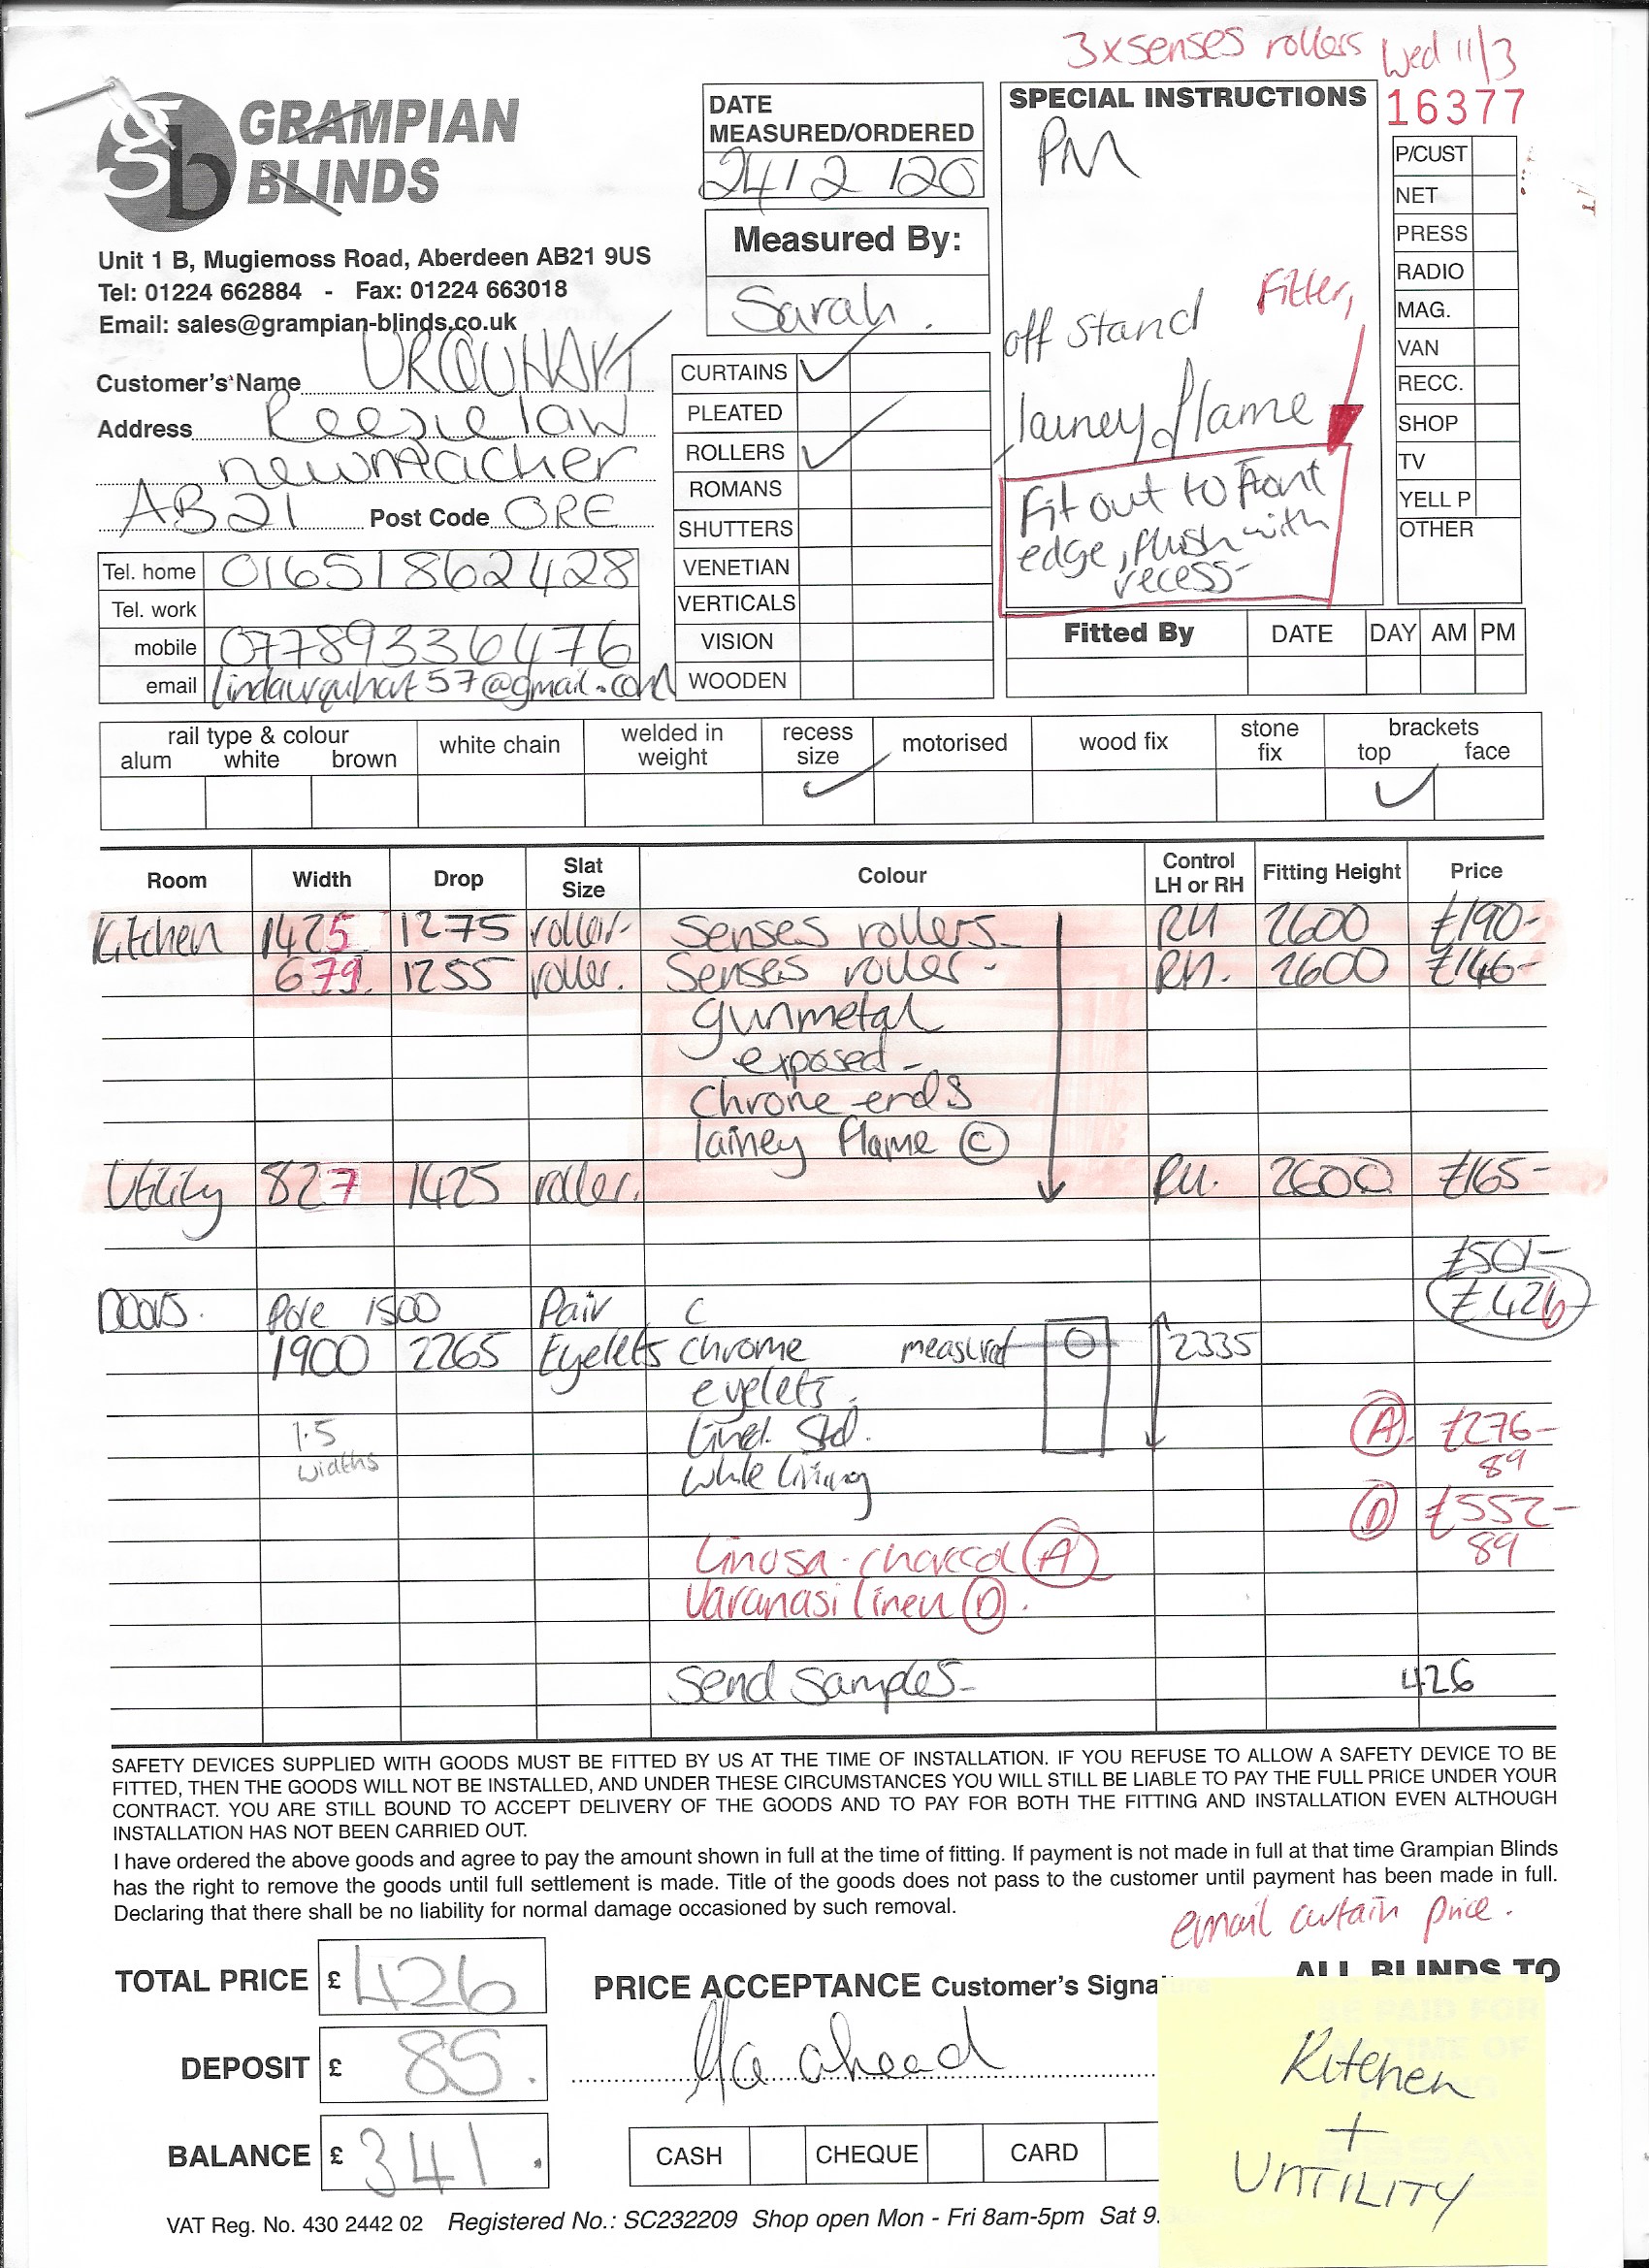 3 x senses rollers Wed 11/3
GRAMPIAN
BLINDS
gb
Unit 1 B, Mugiemoss Road, Aberdeen AB21 9US
Tel: 01224 662884 - Fax: 01224 663018
Email: sales@grampian-blinds.co.uk
Customer's Name URQUHART
Address Reezie law
newmacher
AB21 Post Code 0RE
Tel. home 01651862428
Tel. work
mobile 07789336476
email lindaurquhart57@gmail.com
DATE
MEASURED/ORDERED
24/2/20
Measured By:
Sarah.
CURTAINS ✓
PLEATED
ROLLERS ✓
ROMANS
SHUTTERS
VENETIAN
VERTICALS
VISION
WOODEN
SPECIAL INSTRUCTIONS
PM
off stand
Fitter,
lainey flame
Fit out to Front
edge, flush with
recess-
16377
P/CUST
NET
PRESS
RADIO
MAG.
VAN
RECC.
SHOP
TV
YELL P
OTHER
Fitted By DATE DAY AM PM
rail type & colour
alum white brown
white chain
welded in
weight
recess
size ✓
motorised
wood fix
stone
fix
brackets
top ✓ face
Room Width Drop Slat Size Colour Control LH or RH Fitting Height Price
Kitchen 1425 1275 roller- Senses rollers- RH 2600 £190-
679. 1255 roller. Senses roller- RH. 2600 £146-
gunmetal
exposed-
Chrone ends
lainey flame ©
Utility 827 1425 roller. RH. 2600 £165-
£501-
£426
Doors. Pole 1500 Pair C
1900 2265 Eyelets chrome measured 2335
eyelets.
lined. Std.
1.5
widths
while living
(A). £276-
89
(D) £552-
89
Linosa - charcoal (A)
Varanasi linen (D).
Send Samples- 426
SAFETY DEVICES SUPPLIED WITH GOODS MUST BE FITTED BY US AT THE TIME OF INSTALLATION. IF YOU REFUSE TO ALLOW A SAFETY DEVICE TO BE
FITTED, THEN THE GOODS WILL NOT BE INSTALLED, AND UNDER THESE CIRCUMSTANCES YOU WILL STILL BE LIABLE TO PAY THE FULL PRICE UNDER YOUR
CONTRACT. YOU ARE STILL BOUND TO ACCEPT DELIVERY OF THE GOODS AND TO PAY FOR BOTH THE FITTING AND INSTALLATION EVEN ALTHOUGH
INSTALLATION HAS NOT BEEN CARRIED OUT.
I have ordered the above goods and agree to pay the amount shown in full at the time of fitting. If payment is not made in full at that time Grampian Blinds
has the right to remove the goods until full settlement is made. Title of the goods does not pass to the customer until payment has been made in full.
Declaring that there shall be no liability for normal damage occasioned by such removal.
email curtain price.
TOTAL PRICE £ 426
DEPOSIT £ 85.
BALANCE £ 341.
PRICE ACCEPTANCE Customer's Signa
ALL BLINDS TO
ahead
CASH CHEQUE CARD
Kitchen
+
UNTILITY
VAT Reg. No. 430 2442 02 Registered No.: SC232209 Shop open Mon - Fri 8am-5pm Sat 9.